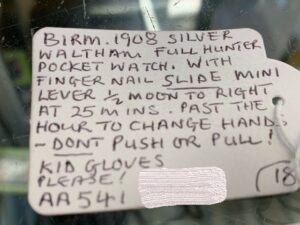 BIRM. 1908 SILVER
WALTHAM FULL HUNTER
POCKET WATCH. WITH
FINGER NAIL SLIDE MINI
LEVER ½ MOON TO RIGHT
AT 25 MINS. PAST THE
HOUR TO CHANGE HAND.
- DONT PUSH OR PULL!
KID GLOVES
PLEASE!
AA541
18